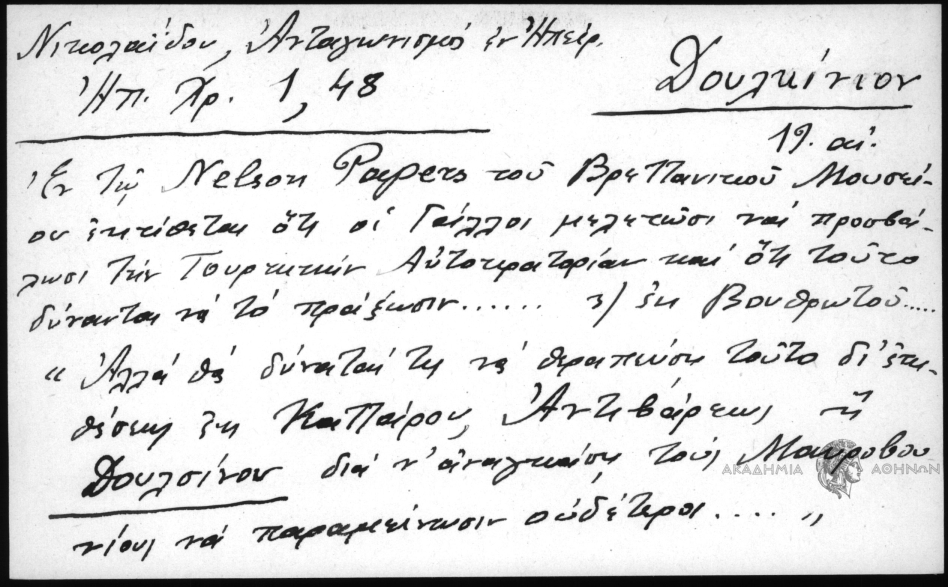 Νικολαΐδου, Ἀνταγωνισμὸς ἐν Ἠπείρ.
Ἠπ. Χρ. 1, 48
Δουλκίνιον
19. αἰ.
Ἐν τῷ Nelson Papers τοῦ Βρεττανικοῦ Μουσεί-
ου ἐκτίθεται ὅτι οἱ Γάλλοι μελετῶσι νὰ προσβά-
λωσι τὴν Τουρκικὴν Αὐτοκρατορίαν καὶ ὅτι τοῦτο
δύνανται νὰ τὸ πράξωσιν...... 3) ἐκ Βουθρωτοῦ.....
"Ἀλλὰ θὰ δύναταί τις νὰ θεραπεύσῃ τοῦτο δι' ἐπι-
θέσεως ἐκ Καττάρου, Ἀντιβάρεως ἢ
Δουλσίνου διὰ ν' ἀναγκάσῃ τοὺς Μαυροβου
νίους νὰ παραμείνωσιν οὐδέτεροι .... "
ΑΚΑΔΗΜΙΑ ΑΘΗΝΩΝ